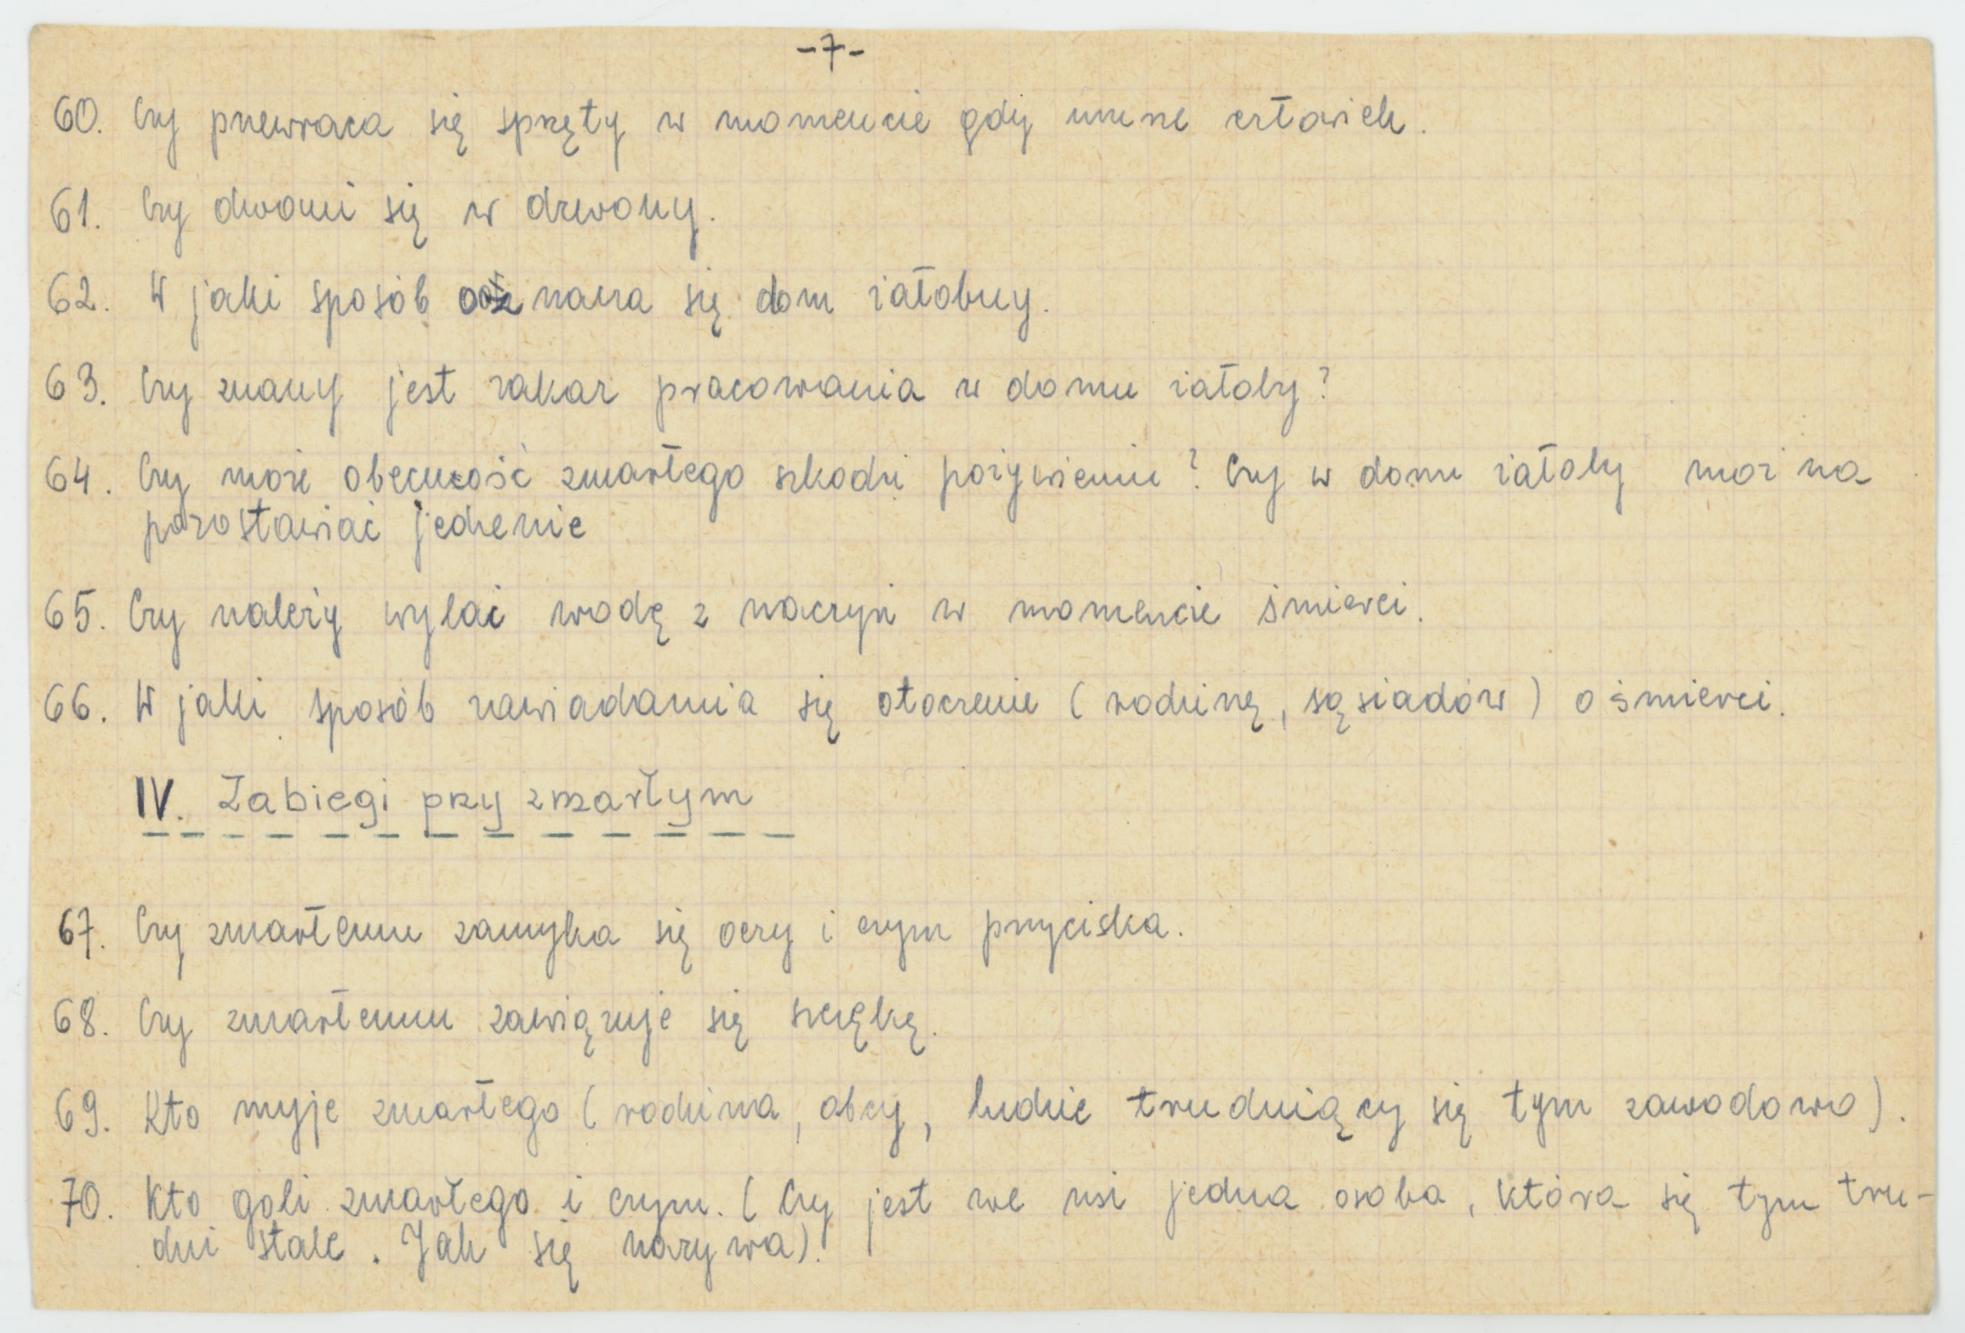 -7-
60. Czy przewraca się sprzęty w momencie gdy umrze człowiek.
61. Czy dwoni się w dzwony.
62. W jaki sposób oznacza się dom żałobny.
63. Czy znany jest zakaz pracowania w domu żałoby?
64. Czy może obecność zmarłego szkodzi pożywieniu? Czy w domu żałoby można
pozostawiać jedzenie
65. Czy należy wylać wodę z naczyń w momencie śmierci.
66. W jaki sposób zawiadamia się otoczenie (rodzinę, sąsiadów) o śmierci.
IV. Zabiegi przy zmarłym
67. Czy zmarłemu zamyka się oczy i czym przyciska.
68. Czy zmarłemu zawiązuje się szczękę.
69. Kto myje zmarłego (rodzina, obcy, ludzie trudniący się tym zawodowo).
70. Kto goli zmarłego i czym. (Czy jest we wsi jedna osoba, która się tym tru-
dni stale. Jak się nazywa).